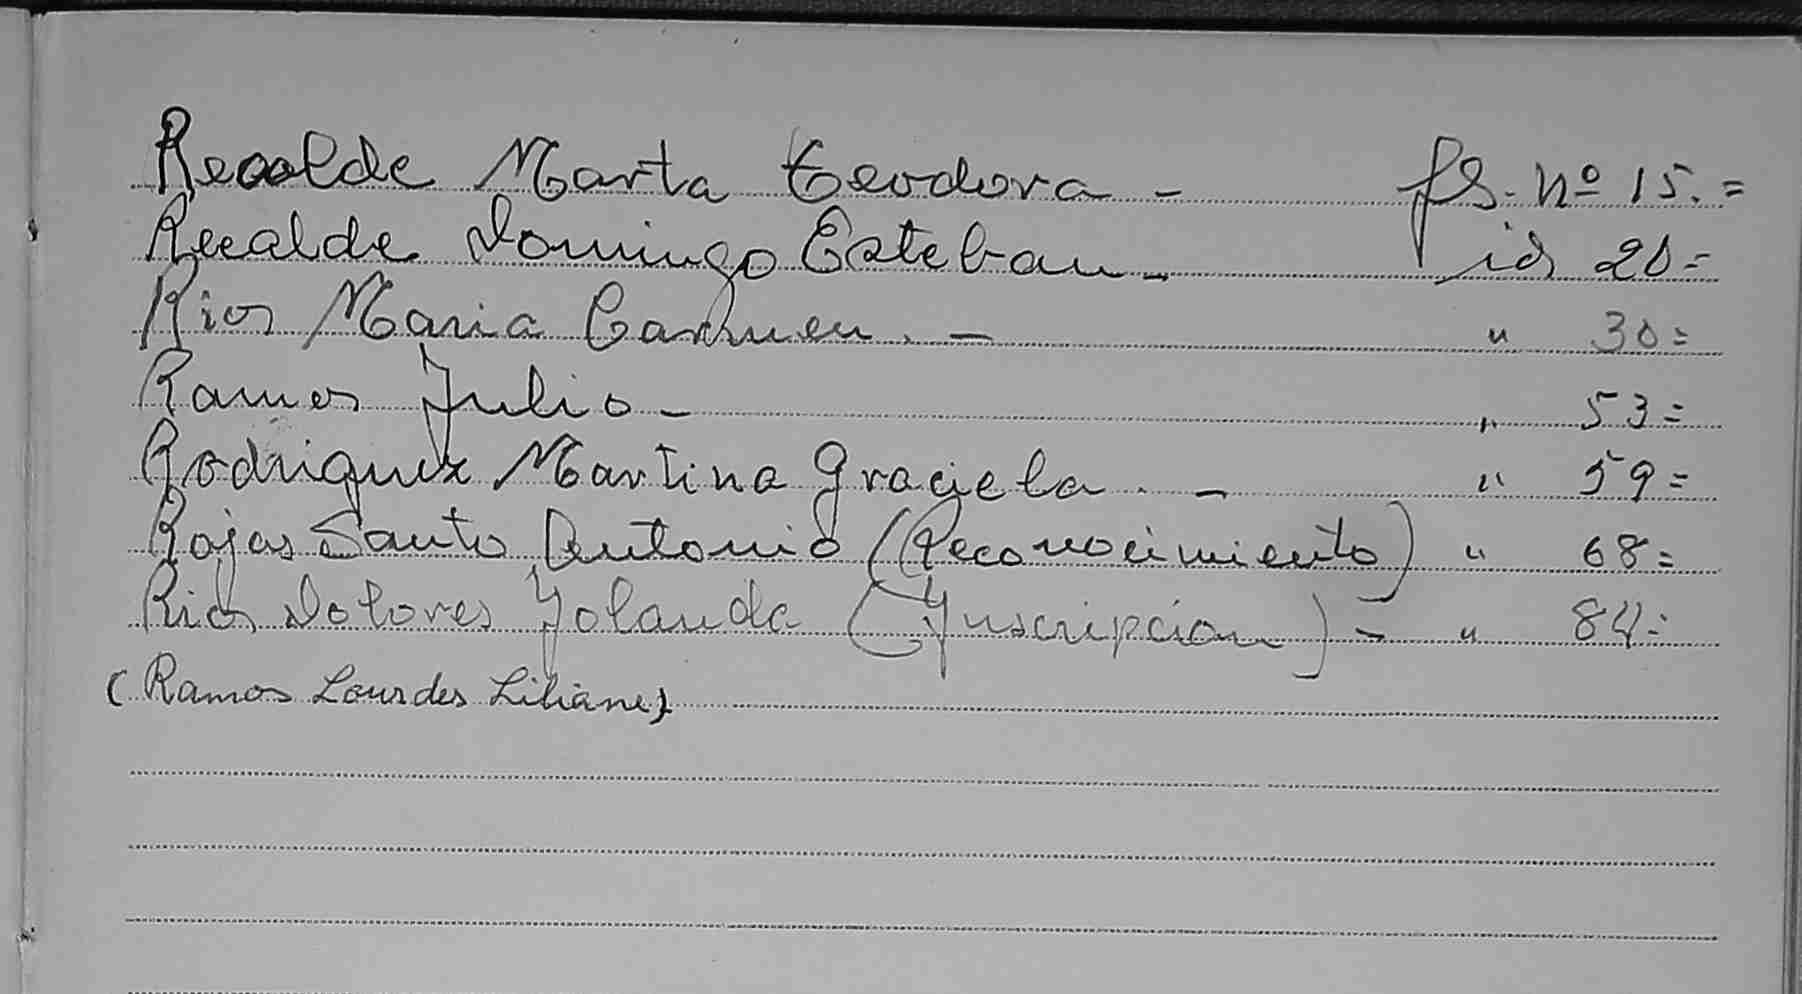 Recalde Marta Teodora - fs. nº 15. =
Recalde Domingo Esteban - id 20 =
Rios Maria Carmen . - " 30 =
Ramos Julio - " 53 =
Rodriguez Martina Graciela . - " 59 =
Rojas Santo Antonio (Reconocimiento) " 68 =
Rios Dolores Yolanda (Inscripcion) - " 84 =
(Ramos Lourdes Liliana)